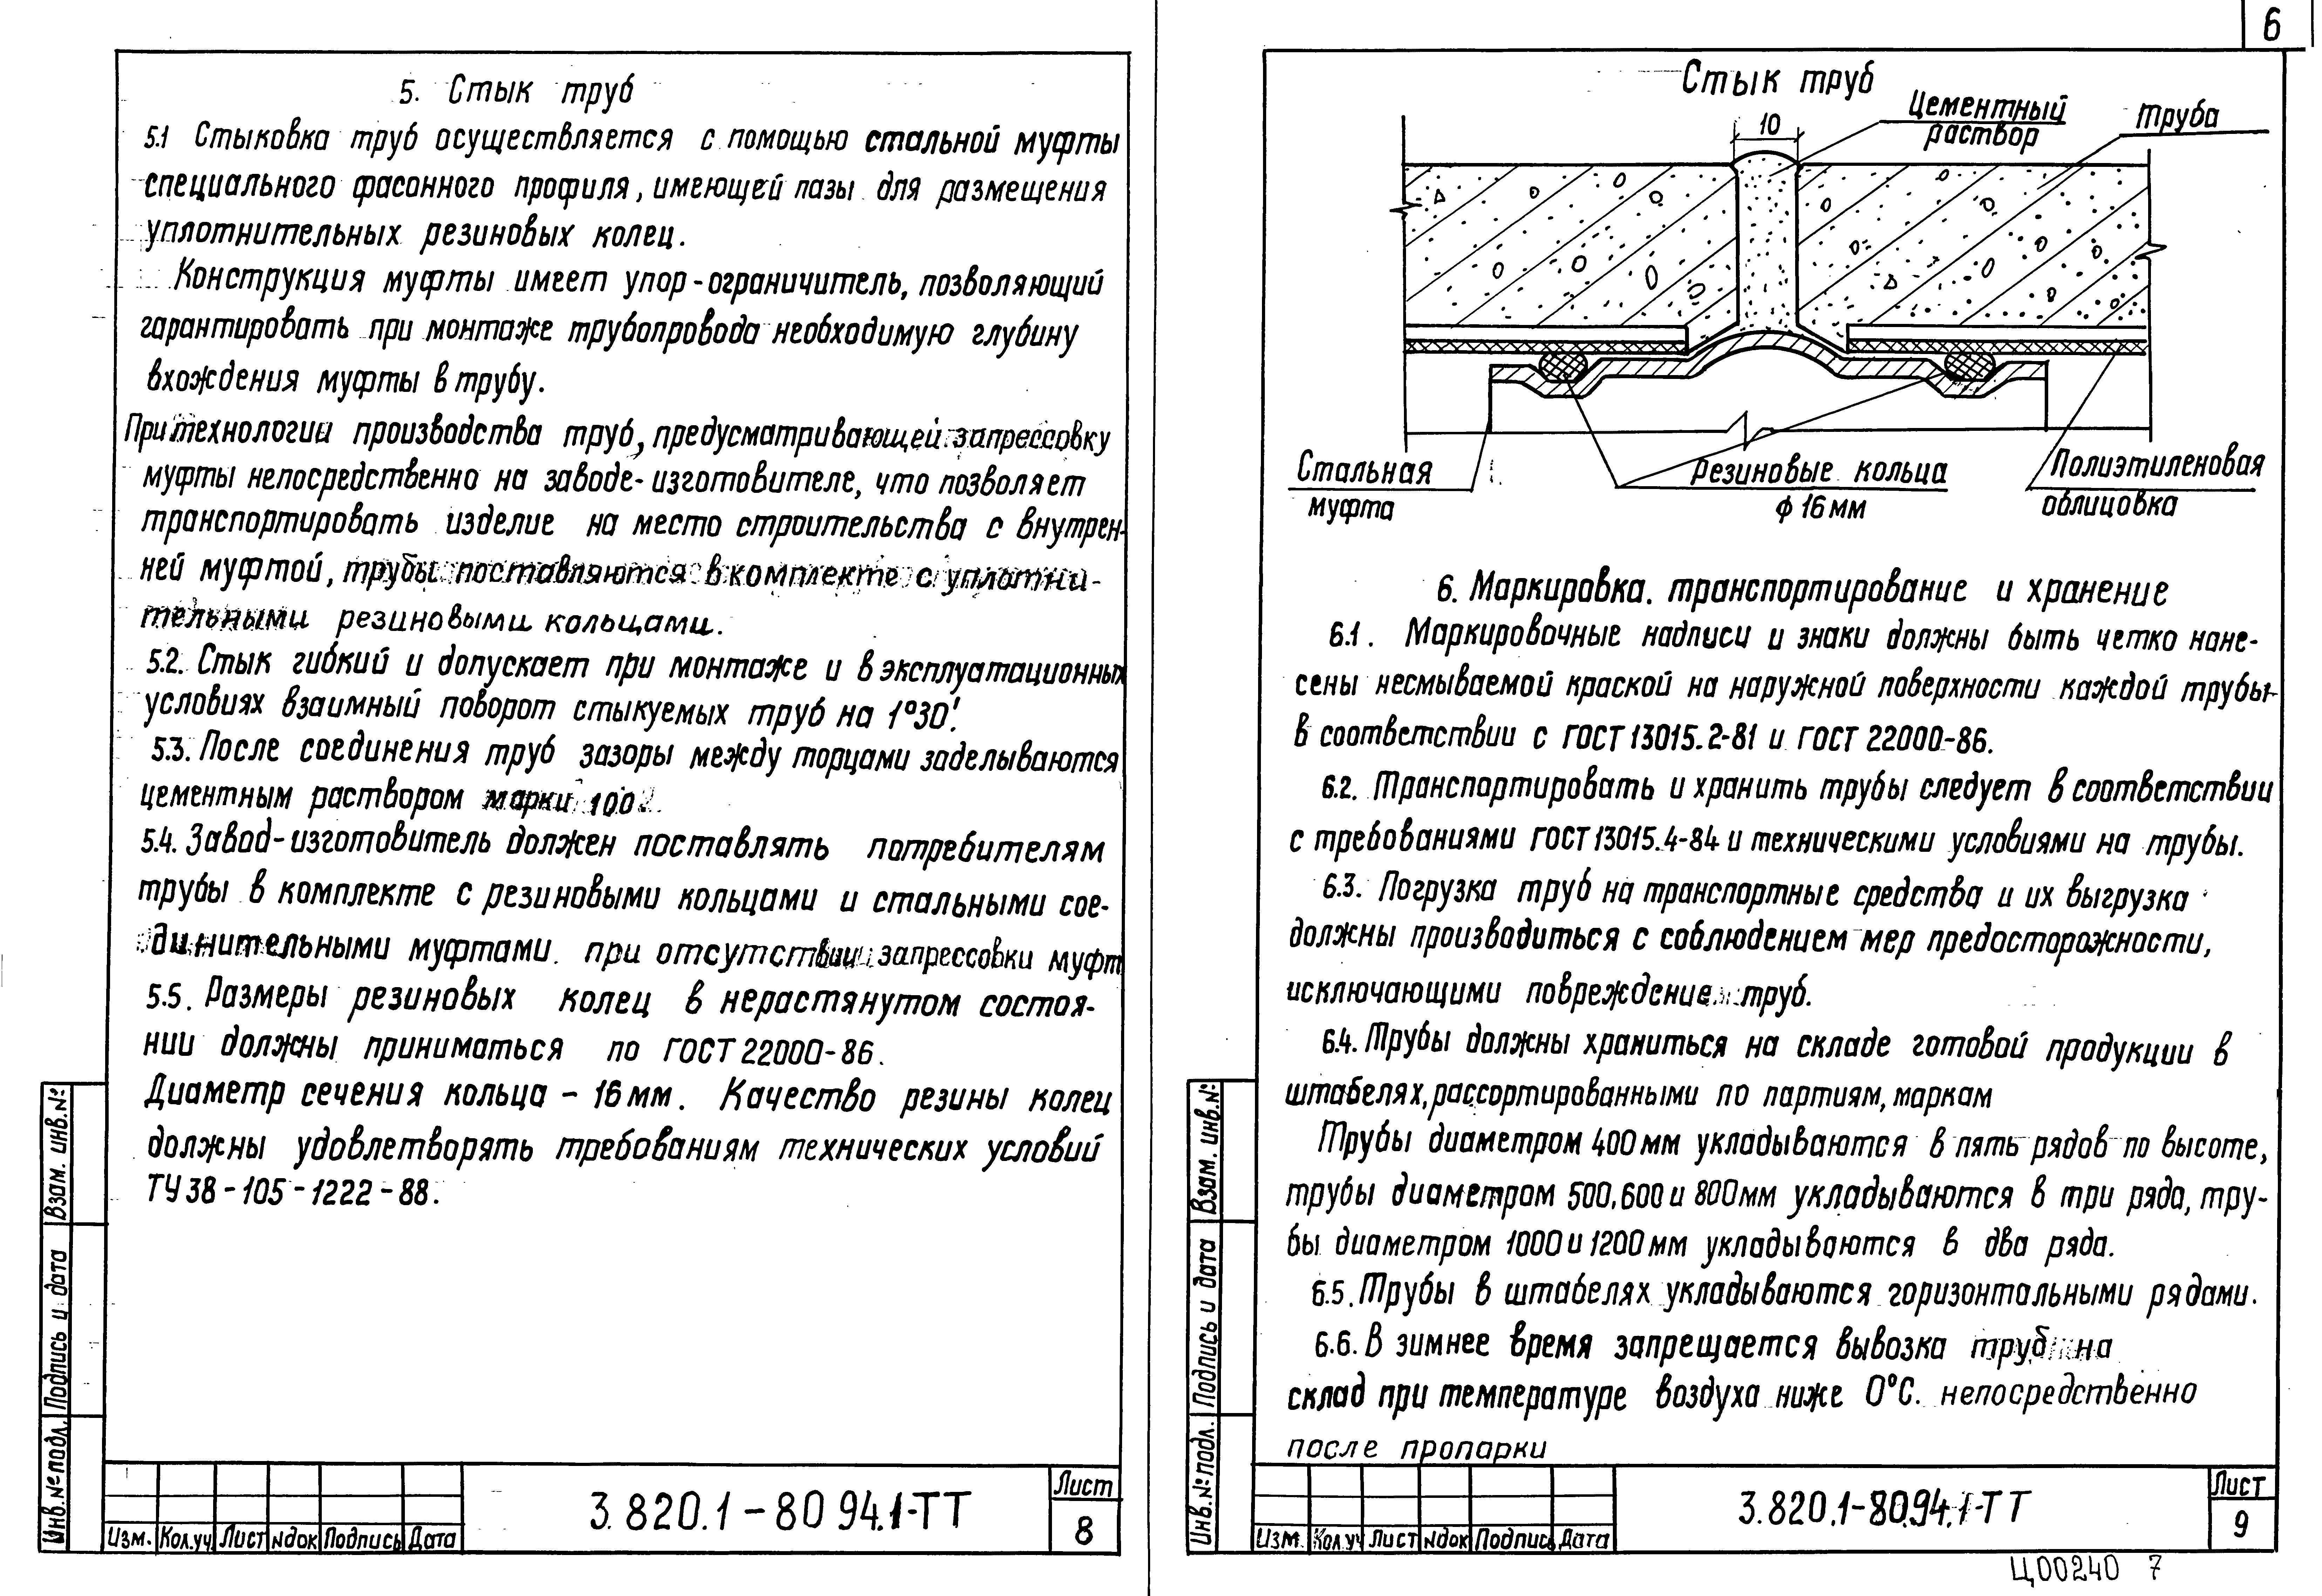 5. Стык труб
5.1 Стыковка труб осуществляется с помощью стальной муфты
специального фасонного профиля, имеющей пазы для размещения
уплотнительных резиновых колец.
Конструкция муфты имеет упор-ограничитель, позволяющий
гарантировать при монтаже трубопровода необходимую глубину
вхождения муфты в трубу.
При технологии производства труб, предусматривающей запрессовку
муфты непосредственно на заводе-изготовителе, что позволяет
транспортировать изделие на место строительства с внутрен-
ней муфтой, трубы поставляются в комплекте с уплотни-
тельными резиновыми кольцами.
5.2. Стык гибкий и допускает при монтаже и в эксплуатационных
условиях взаимный поворот стыкуемых труб на 1°30'.
5.3. После соединения труб зазоры между торцами заделываются
цементным раствором марки 100.
5.4. Завод-изготовитель должен поставлять потребителям
трубы в комплекте с резиновыми кольцами и стальными сое-
динительными муфтами. при отсутствии запрессовки муфт
5.5. Размеры резиновых колец в нерастянутом состоя-
нии должны приниматься по ГОСТ 22000-86.
Диаметр сечения кольца - 16 мм. Качество резины колец
должны удовлетворять требованиям технических условий
ТУ 38-105-1222-88.
Взам. инв.№
Подпись и дата
Инв.№ подл.
Изм. Кол.уч. Лист Nдок Подпись Дата
3.820.1-80 94.1-ТТ
Лист
8
6
Стык труб
10
Цементный
раствор
Труба
Стальная
муфта
Резиновые кольца
ф 16 мм
Полиэтиленовая
облицовка
6. Маркировка. транспортирование и хранение
6.1. Маркировочные надписи и знаки должны быть четко нане-
сены несмываемой краской на наружной поверхности каждой трубы
в соответствии с ГОСТ 13015.2-81 и ГОСТ 22000-86.
6.2. Транспортировать и хранить трубы следует в соответствии
с требованиями ГОСТ 13015.4-84 и техническими условиями на трубы.
6.3. Погрузка труб на транспортные средства и их выгрузка
должны производиться с соблюдением мер предосторожности,
исключающими повреждение труб.
6.4. Трубы должны храниться на складе готовой продукции в
штабелях, рассортированными по партиям, маркам
Трубы диаметром 400 мм укладываются в пять рядов по высоте,
трубы диаметром 500, 600 и 800 мм укладываются в три ряда, тру-
бы диаметром 1000 и 1200 мм укладываются в два ряда.
6.5. Трубы в штабелях укладываются горизонтальными рядами.
6.6. В зимнее время запрещается вывозка труб на
склад при температуре воздуха ниже 0°С. непосредственно
после пропарки
Взам. инв.№
Подпись и дата
Инв.№ подл.
Изм. Кол.уч Лист Nдок Подпись Дата
3.820.1-80.94.1-ТТ
Лист
9
Ц00240 7